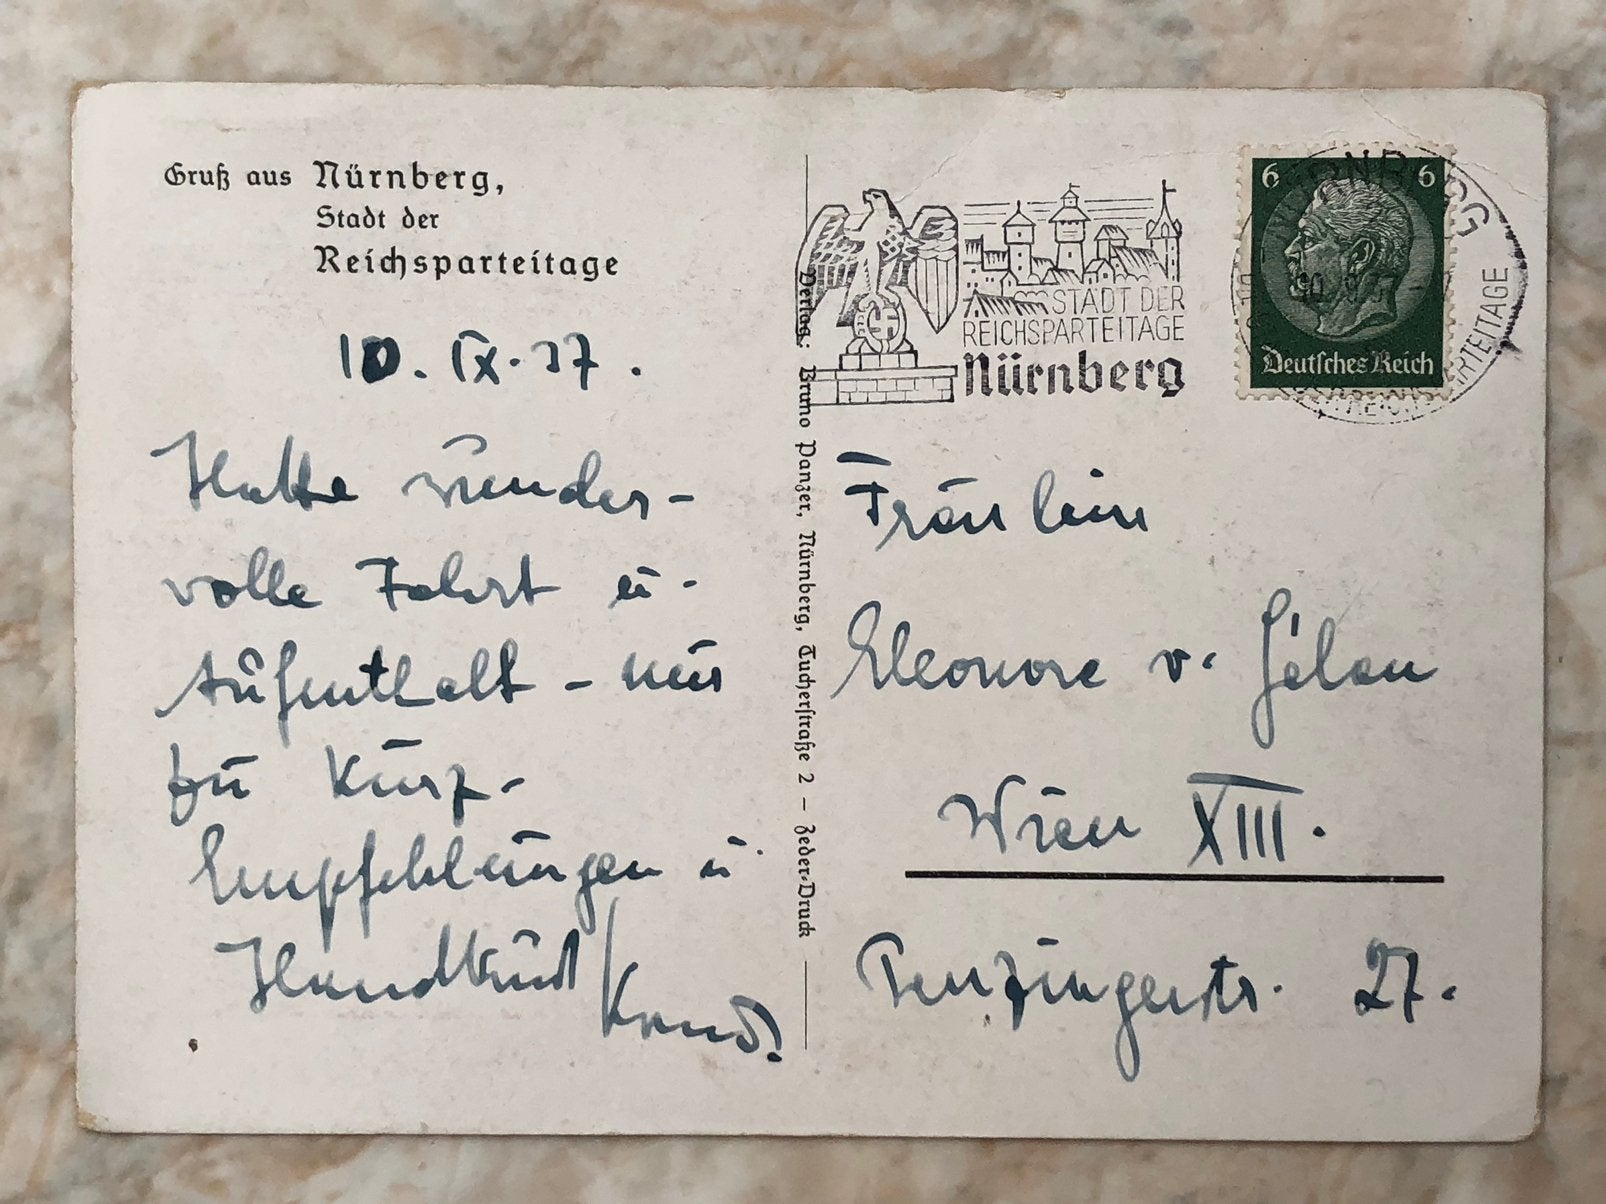 Gruß aus Nürnberg,
Stadt der
Reichsparteitage
10. IX. 37.
Hatte wunder-
volle Fahrt u.
Aufenthalt - nur
zu kurz.
Empfehlungen u.
Handkuß
Verlag: Bruno Panzer, Nürnberg, Tucherstraße 2 – Zeder-Druck
STADT DER
REICHSPARTEITAGE
Nürnberg
6 6
Deutsches Reich
Fräulein
Eleonore v.
Wien XIII.
Penzingerstr. 27.